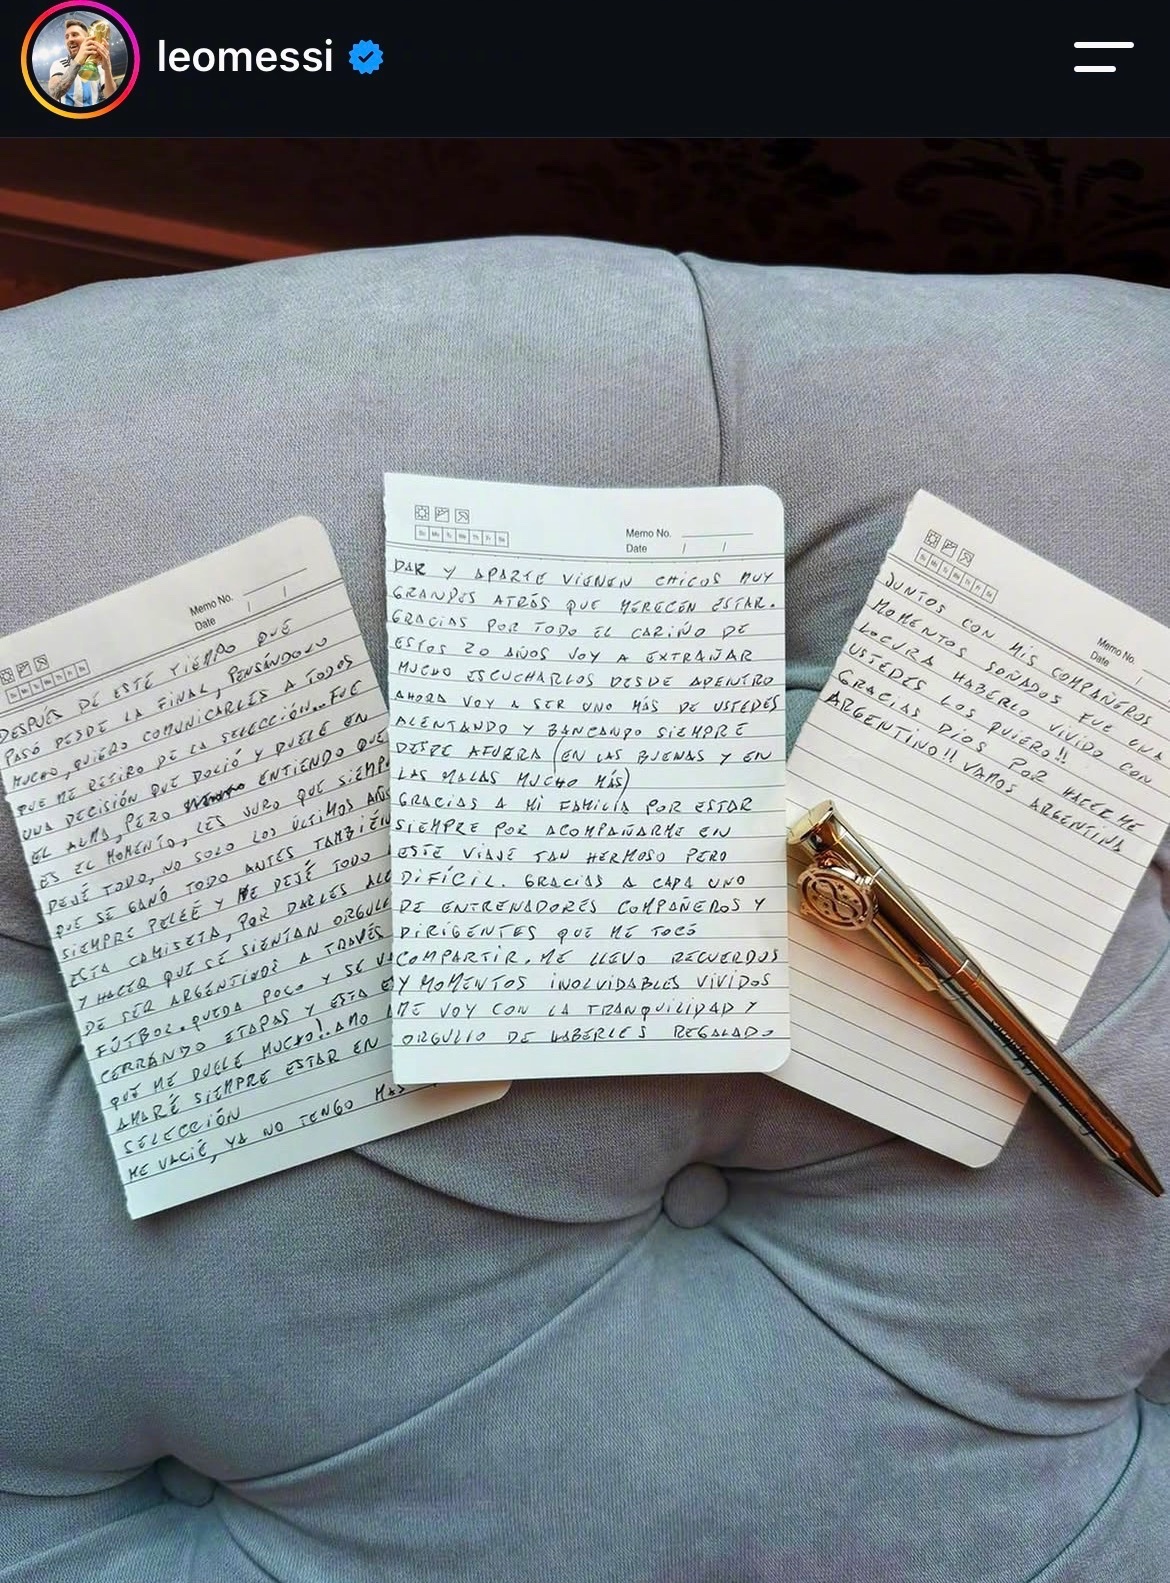 leomessi
Memo No.
Date / /
DESPUÉS DE ESTE TIEMPO QUE
PASÓ DESDE LA FINAL, PENSÁNDOLO
MUCHO, QUIERO COMUNICARLES A TODOS
QUE ME RETIRO DE LA SELECCIÓN... FUE
UNA DECISIÓN QUE DOLIÓ Y DUELE EN
EL ALMA, PERO ENTIENDO QUE
ES EL MOMENTO, LES JURO QUE SIEMP
DEJÉ TODO, NO SOLO LOS ÚLTIMOS AÑOS
QUE SE GANÓ TODO ANTES TAMBIÉN
SIEMPRE PELEÉ Y ME DEJÉ TODO
ESTA CAMISETA, POR DARLES ALE
Y HACER QUE SE SIENTAN ORGULL
DE SER ARGENTINOS A TRAVÉS
FÚTBOL. QUEDA POCO Y SE VA
CERRANDO ETAPAS Y ESTA E
QUE ME DUELE MUCHO!. AMO
AMARÉ SIEMPRE ESTAR EN
SELECCIÓN
ME VACIÉ, YA NO TENGO MAS
Su Mo Tu We Th Fr Sa
Memo No.
Date / /
DAR Y APARTE VIENEN CHICOS MUY
GRANDES ATRÁS QUE MERECEN ESTAR.
GRACIAS POR TODO EL CARIÑO DE
ESTOS 20 AÑOS VOY A EXTRAÑAR
MUCHO ESCUCHARLOS DESDE ADENTRO
AHORA VOY A SER UNO MÁS DE USTEDES
ALENTANDO Y BANCANDO SIEMPRE
DESDE AFUERA (EN LAS BUENAS Y EN
LAS MALAS MUCHO MÁS)
GRACIAS A MI FAMILIA POR ESTAR
SIEMPRE POR ACOMPAÑARME EN
ESTE VIAJE TAN HERMOSO PERO
DIFÍCIL. GRACIAS A CADA UNO
DE ENTRENADORES COMPAÑEROS Y
DIRIGENTES QUE ME TOCÓ
COMPARTIR. ME LLEVO RECUERDOS
Y MOMENTOS INOLVIDABLES VIVIDOS
ME VOY CON LA TRANQUILIDAD Y
ORGULLO DE HABERLES REGALADO
Memo No.
Date /
JUNTOS CON MIS COMPAÑEROS
MOMENTOS SOÑADOS FUE UNA
LOCURA HABERLO VIVIDO CON
USTEDES LOS QUIERO!!
GRACIAS DIOS POR HACERME
ARGENTINO!! VAMOS ARGENTINA